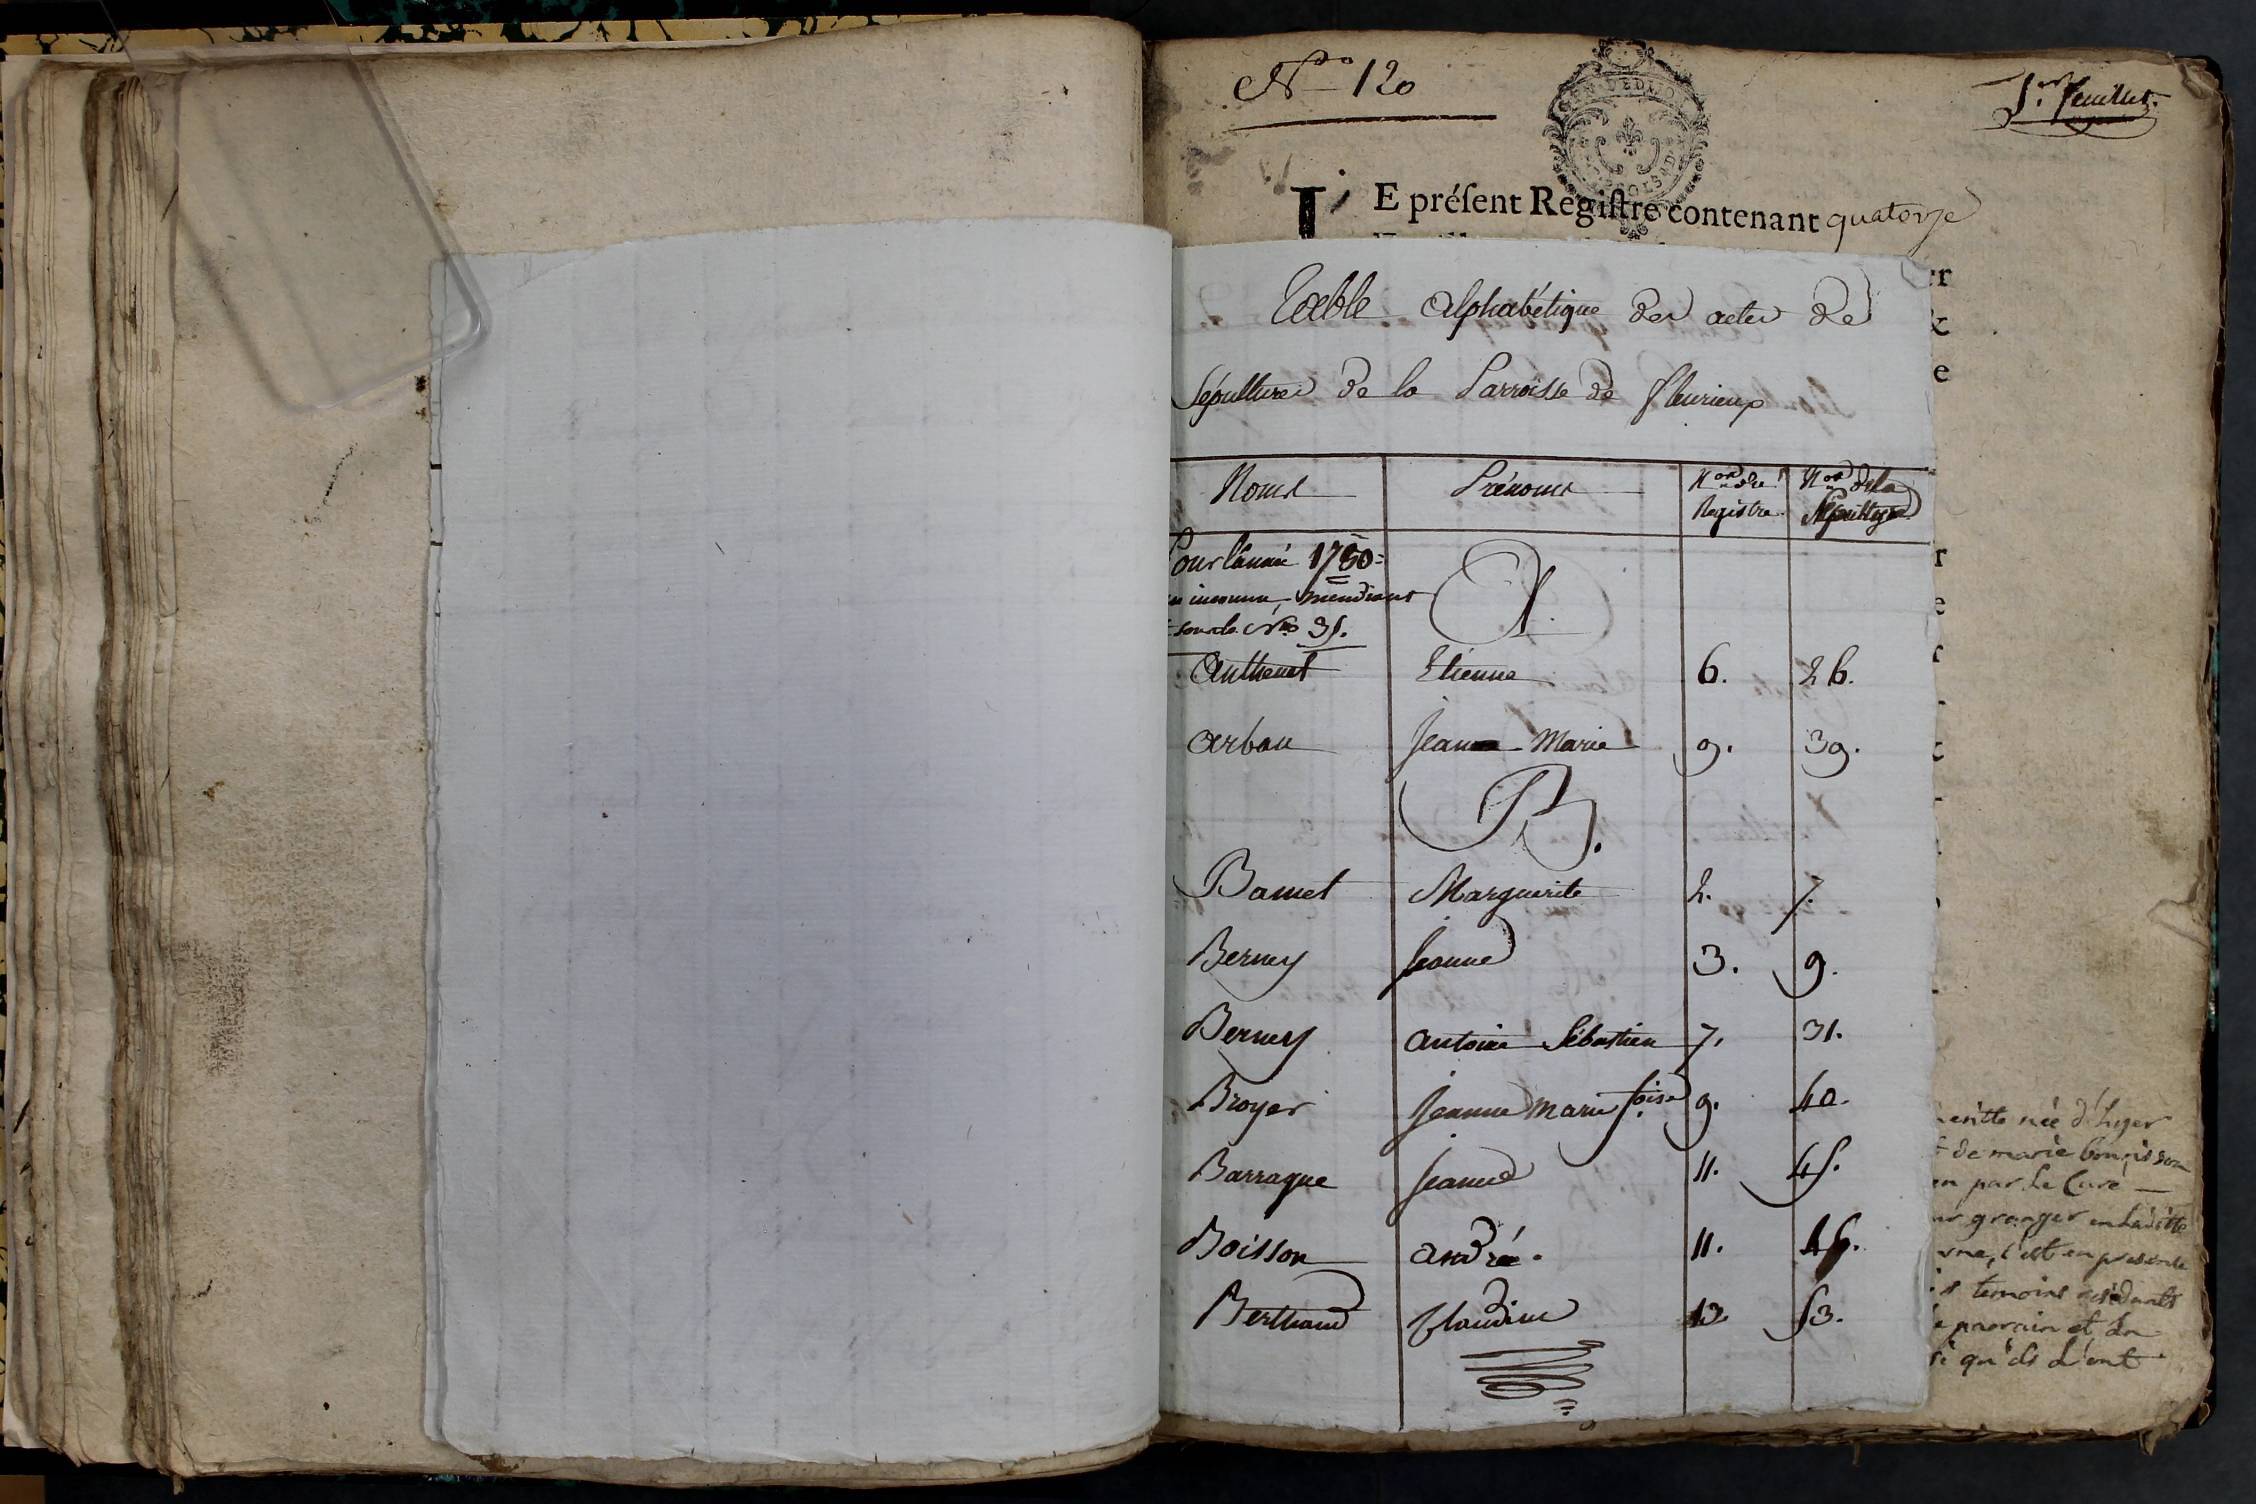 No 120
1er feuillet.
LE préſent Regiſtre contenant quatorze
Table alphabétique des actes de
Sépultures de la Parroisse de fleurieux
Noms Prénoms Nos du Registre Nos de la Sépulture
Pour l'année 1780
inconnu, mendiant
sous le No 31.
A.
Authenet Etienne 6. 26.
arban Jean Marie 9. 39.
B.
Bamet Marguerite 2. 7.
Berney Jeanne 3. 9.
Berney antoine Sébastien 7. 31.
Broyer Jeanne Marie foise 9. 40.
Barraque Jeanne 11. 45.
Boisson andré. 11. 46.
Berthaud Claudine 13. 53.
née d'hyer
de marie bouisson
par Le Curé
granger
c'est en presence
temoins residants
parrain et
qu'ils l'ont